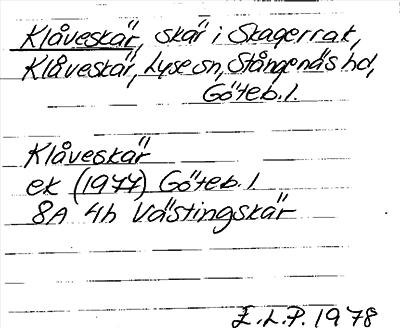 Klåveskär, skär i Skagerrak,
Klåveskär, Lyse sn, Stångenäs hd,
Göteb. l.
Klåveskär
ek (1977) Göteb. l
8A 4h Västingskär
E. L. P. 1978